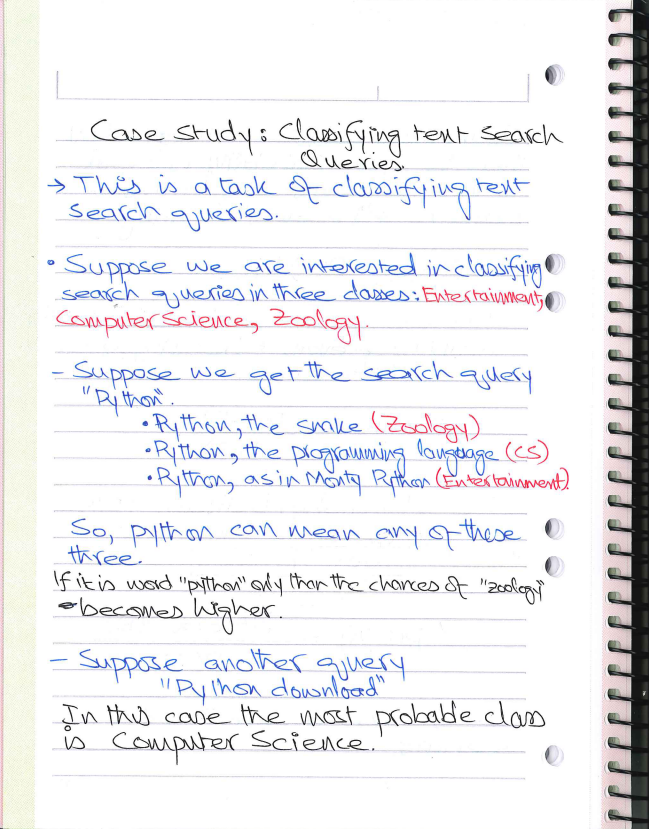 Case Study: Classifying text Search
Queries.
→ This is a task of classifying text
search queries.
• Suppose we are interested in classifying
search queries in three classes: Entertainment,
Computer Science, Zoology.
- Suppose we get the search query
"Python".
• Python, the snake (Zoology)
• Python, the programming language (CS)
• Python, as in Monty Python (Entertainment)
So, python can mean any of these
three.
If it is word "python" only than the chances of "zoology"
becomes higher.
- Suppose another query
"Python download"
In this case the most probable class
is Computer Science.